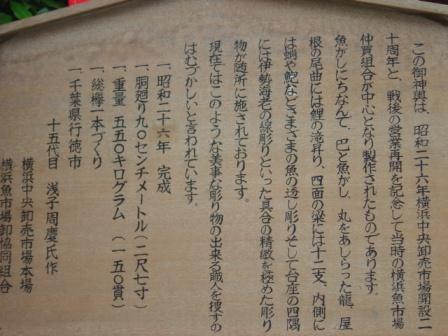 この御神輿は、昭和二十六年横浜中央卸売市場開設二
十周年と、戦後の営業再開を記念して当時の横浜魚市場
仲買組合が中心となり製作されたものであります。
魚がしにちなんで、巴と魚がし、丸をあしらった龍、屋
根の尾曲には鯉の滝昇り、四面の梁には十二支、内側に
は蛸や鮑などさまざまの魚の透し彫りそして台座の四隅
には伊勢海老の線彫りといった具合の精緻を極めた彫り
物が随所に施されております。
現在ではこのような美事な彫り物の出来る職人を捜すの
はむづかしいと言われています。
一、昭和二十六年 完成
一、胴廻り九〇センチメートル(二尺七寸)
一、重量 五五〇キログラム (一五〇貫)
一、総欅一本づくり
一、千葉県行徳市
十五代目 浅子周慶氏作
横浜中央卸売市場本場
横浜魚市場卸協同組合